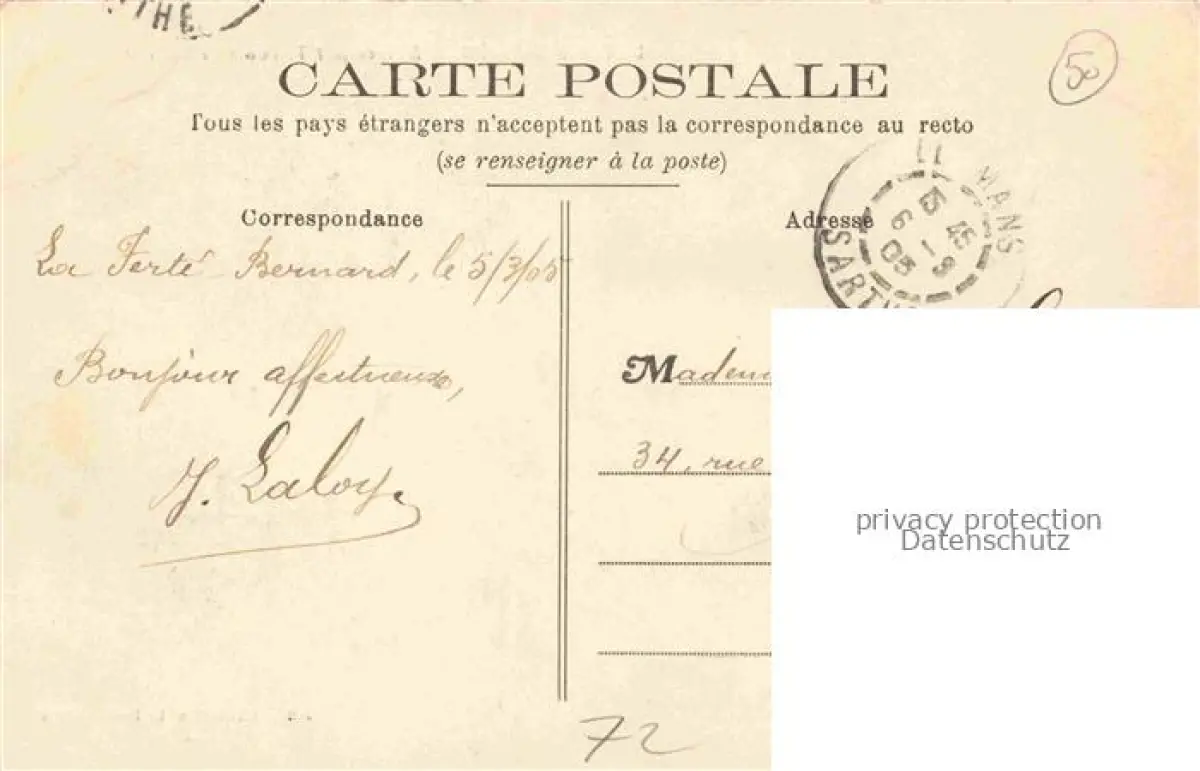 THE
50
CARTE POSTALE
Tous les pays étrangers n'acceptent pas la correspondance au recto
(se renseigner à la poste)
Correspondance
Adresse
LE MANS
15 45
6 - 3
05
SARTH
La Ferté Bernard, le 5/3/05
Bonjour affectueux,
J. Laloy.
Madem
34, rue
privacy protection
Datenschutz
72